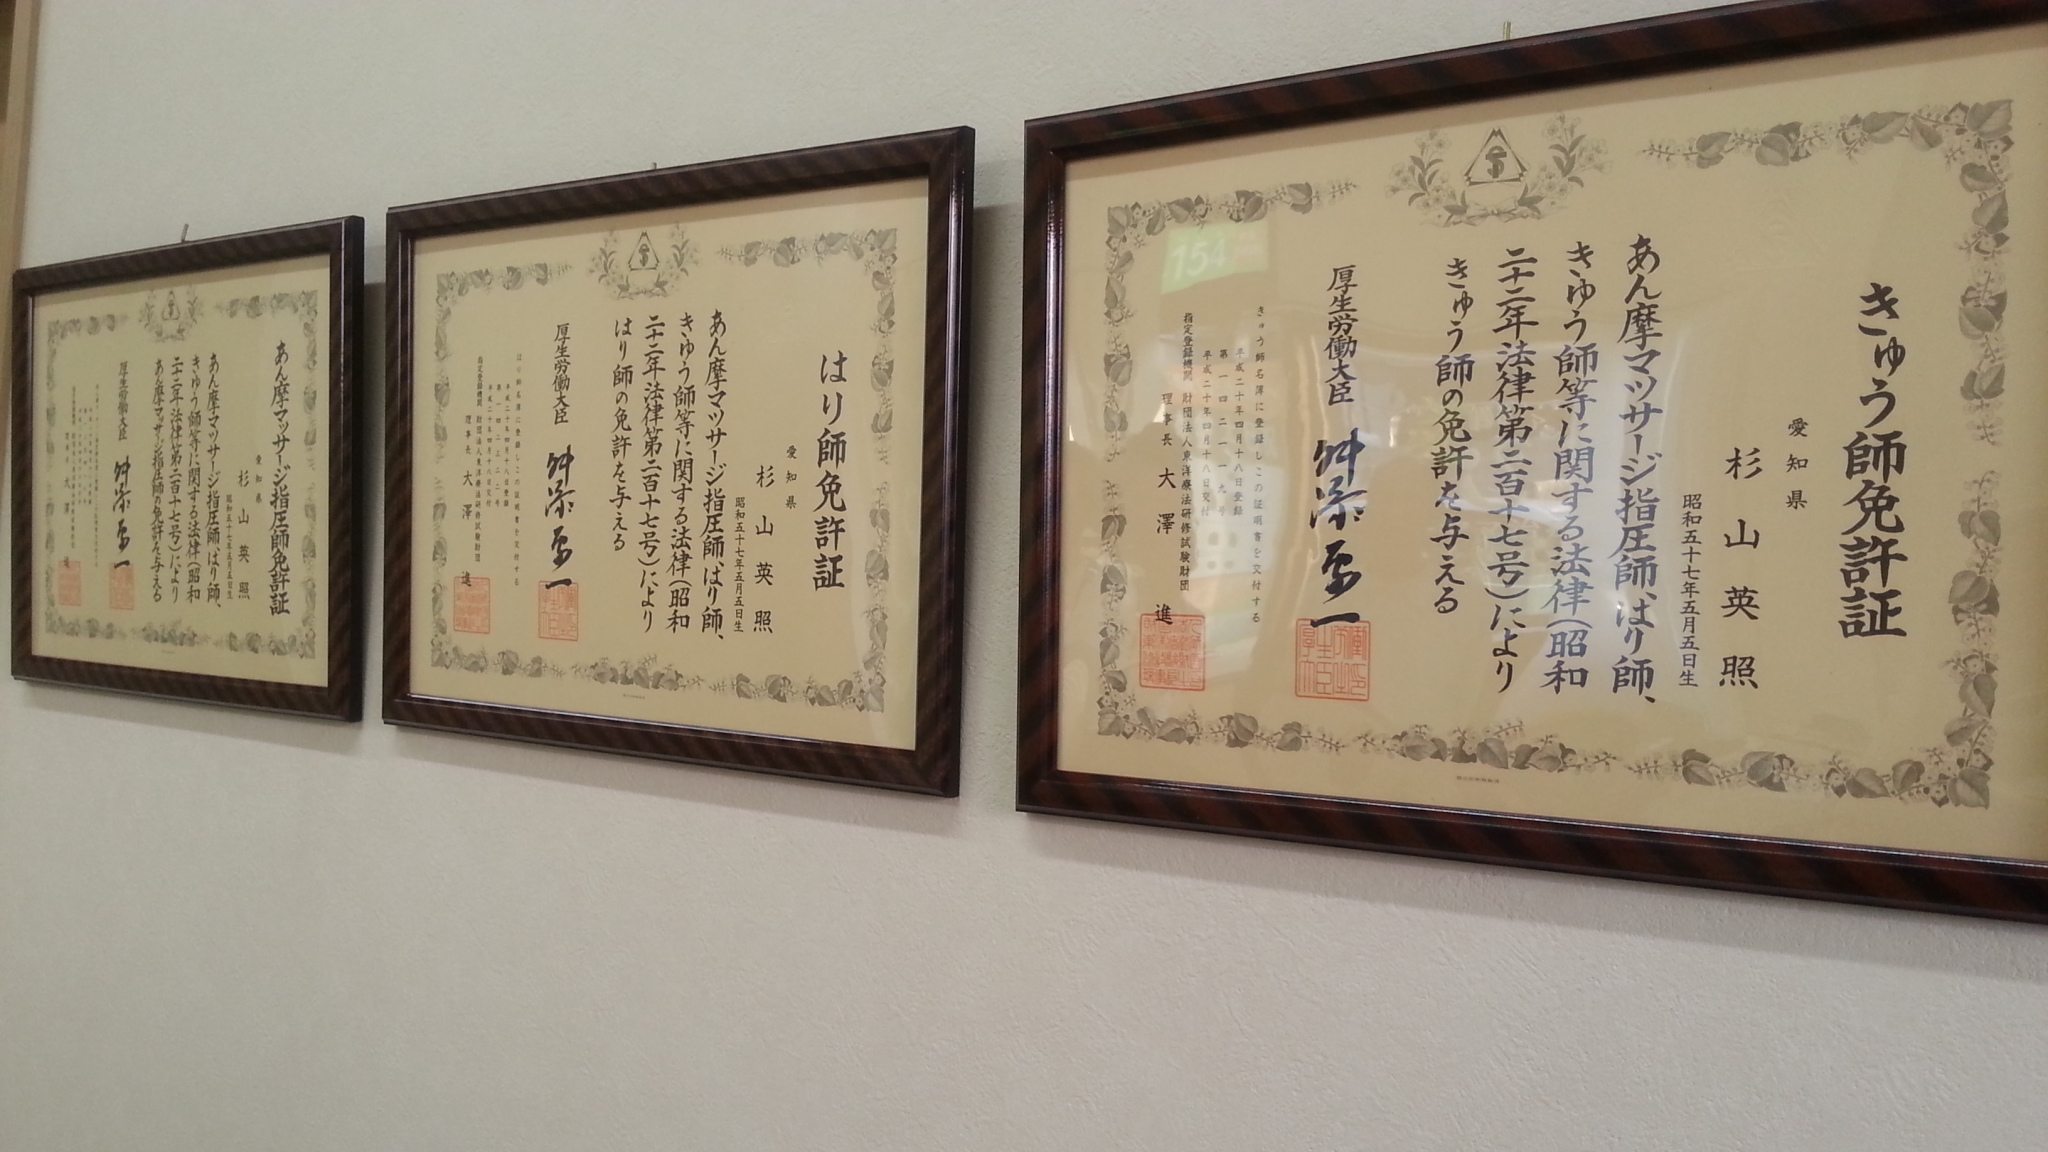 きゅう師免許証
愛知県
杉山英照
昭和五十七年五月五日生
あん摩マツサージ指圧師、はり師、
きゆう師等に関する法律(昭和
二十二年法律第二百十七号)により
きゅう師の免許を与える
厚生労働大臣 舛添要一
きゅう師名簿に登録しこの証明書を交付する
平成二十年四月十八日登録
第一四二一一九号
平成二十年四月十八日交付
指定登録機関 財団法人東洋療法研修試験財団
理事長 大澤 進
はり師免許証
愛知県
杉山英照
昭和五十七年五月五日生
あん摩マツサージ指圧師、はり師、
きゆう師等に関する法律(昭和
二十二年法律第二百十七号)により
はり師の免許を与える
厚生労働大臣 舛添要一
はり師名簿に登録しこの証明書を交付する
平成二十年四月十八日登録
平成二十年四月十八日交付
指定登録機関 財団法人東洋療法研修試験財団
理事長 大澤 進
あん摩マッサージ指圧師免許証
愛知県
杉山英照
昭和五十七年五月五日生
あん摩マツサージ指圧師、はり師、
きゆう師等に関する法律(昭和
二十二年法律第二百十七号)により
あん摩マッサージ指圧師の免許を与える
厚生労働大臣 舛添要一
理事長 大澤 進
154